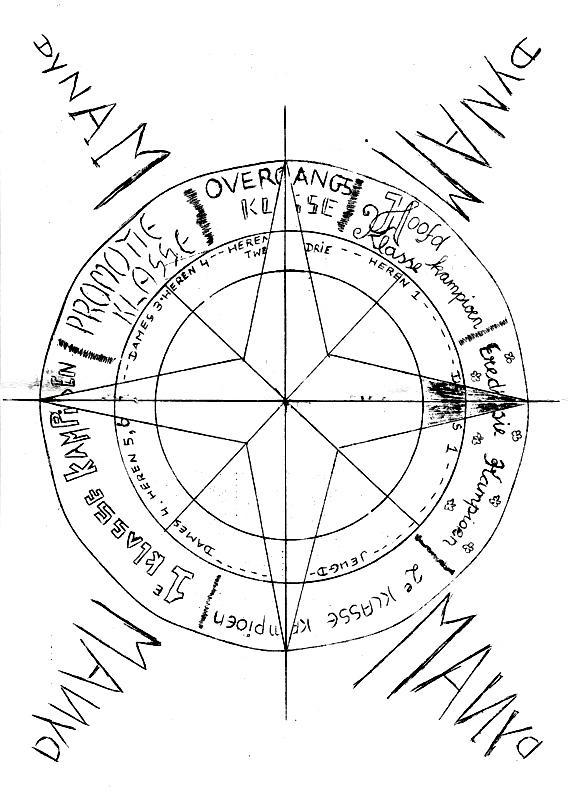 DYNAM
DYNAM
OVERGANGS
KLASSE
Hoofd
klasse kampioen
Eredivisie Kampioen
2e KLASSE kampioen
1e KLASSE KAMPIOEN
PROMOTIE
KLASSE
HEREN
TWE
DRIE
HEREN 1
DAMES 1
JEUGD
DAMES 4. HEREN 5, 6
DAMES 3. HEREN 4
DYNAM
DYNAM